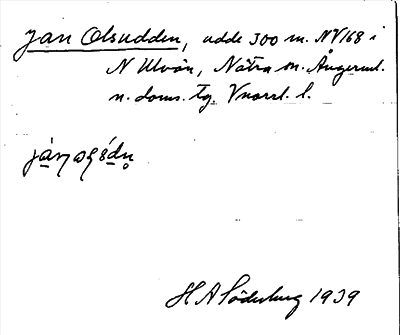 Jan Olsudden, udde 300 m. NV 168 i
N Ulvön, Nätra sn. Ångerml.
n. doms. tg. Vnorrl. l.
H A Söderberg 1939